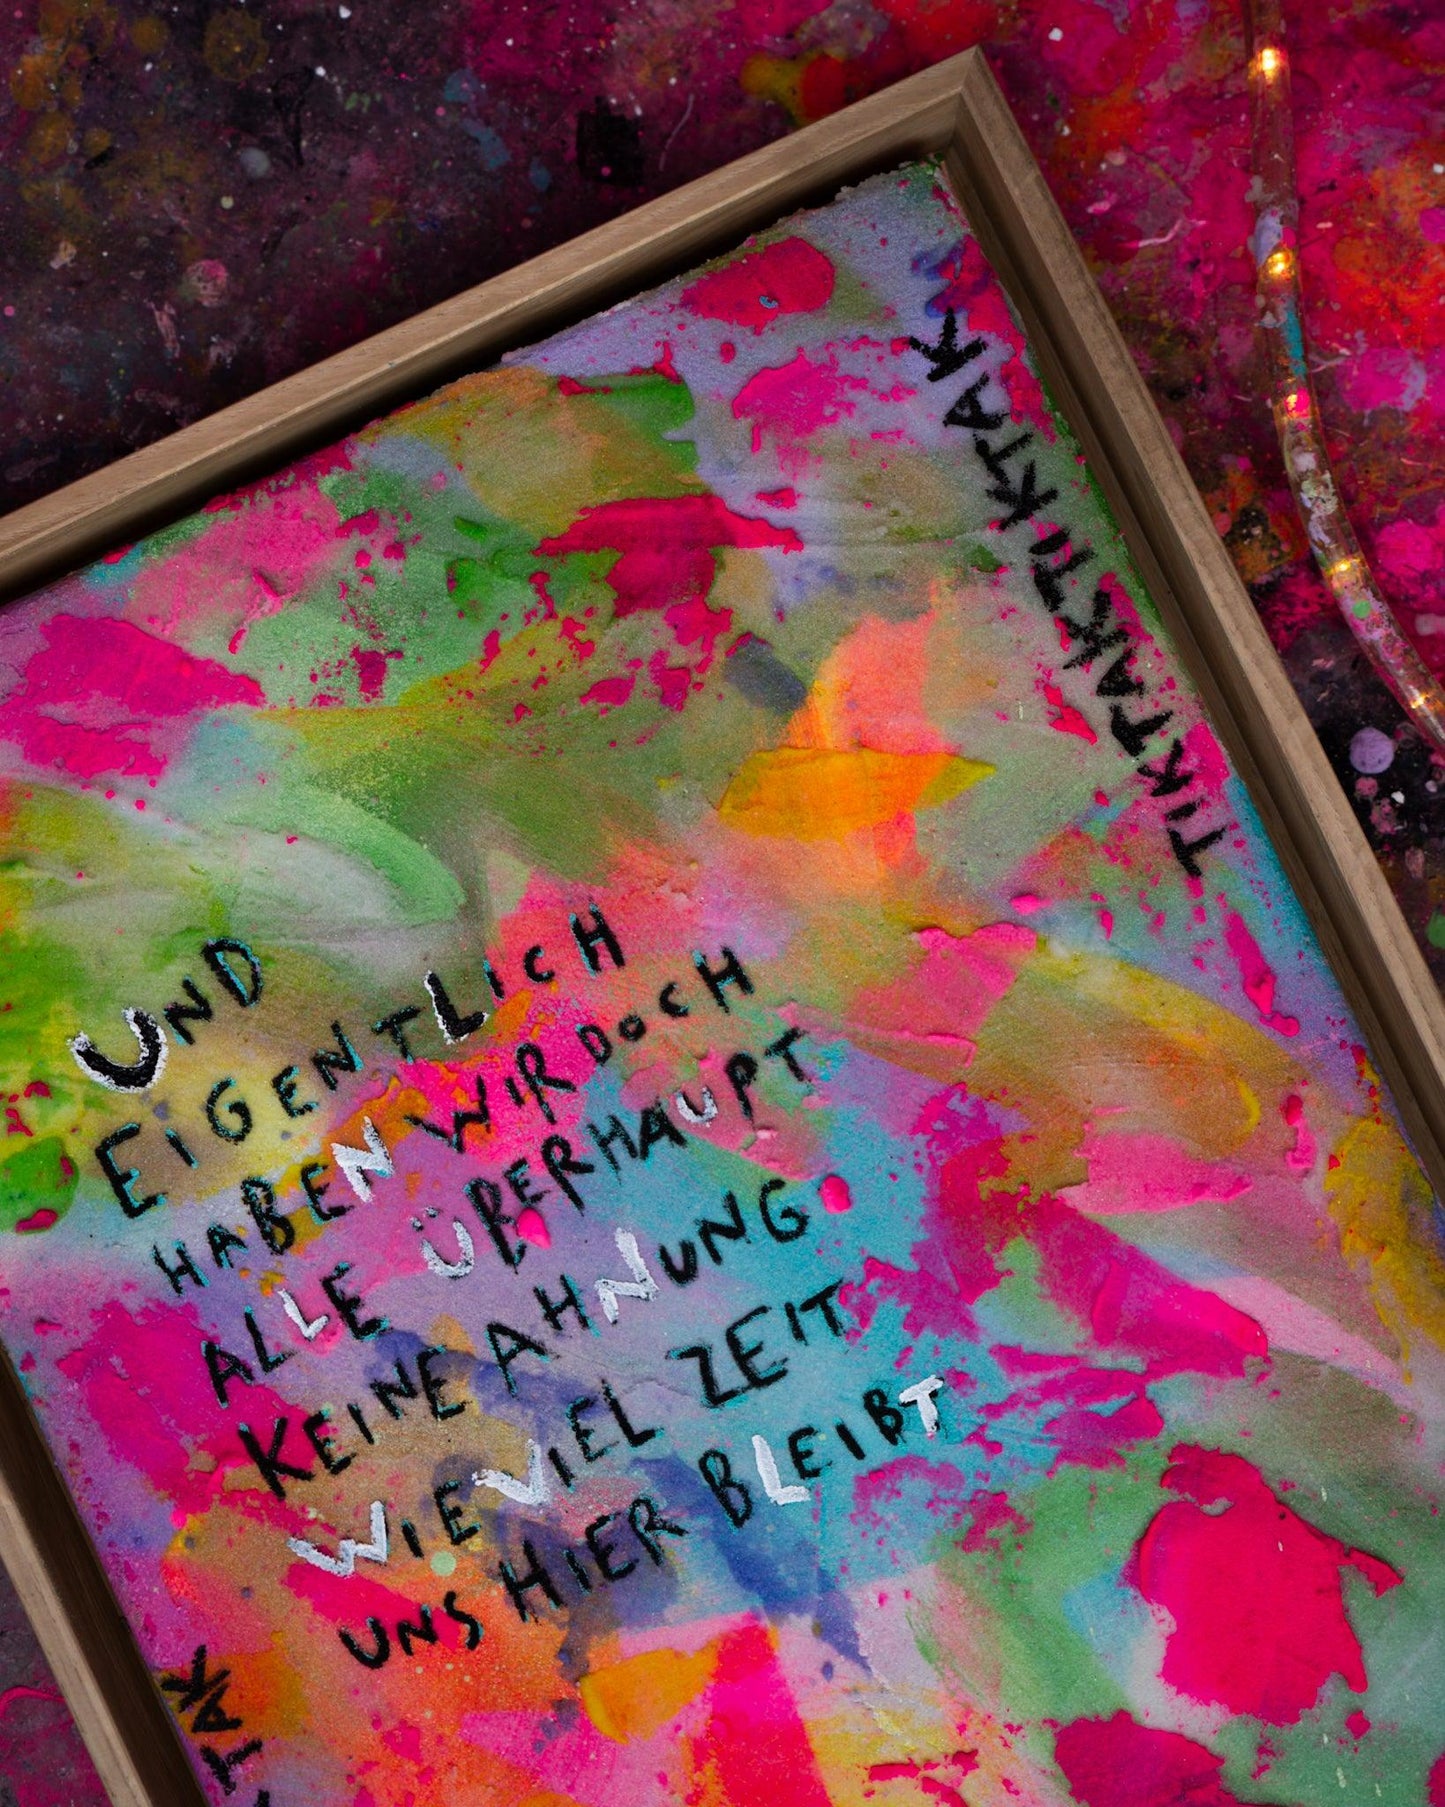 UND
EIGENTLICH
HABEN WIR DOCH
ALLE ÜBERHAUPT
KEINE AHNUNG
WIE VIEL ZEIT
UNS HIER BLEIBT
TIKTAKTIKTAKTIKTAK
TAK